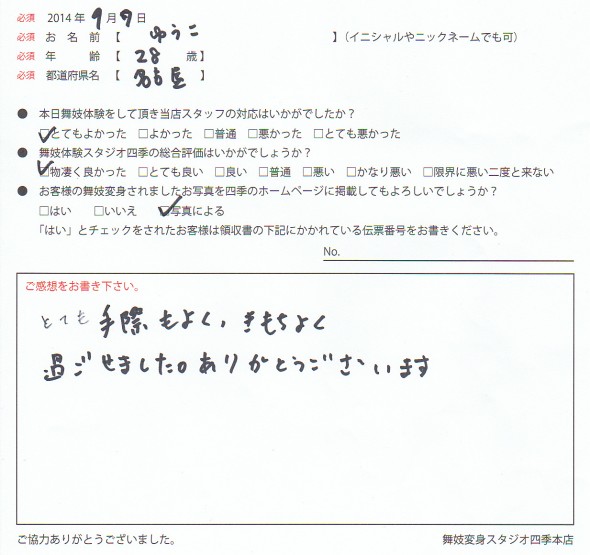 必須 2014年 9月9日
必須 お名前【 ゆうこ 】(イニシャルやニックネームでも可)
必須 年齢【 28 歳】
必須 都道府県名【 名古屋 】
● 本日舞妓体験をして頂き当店スタッフの対応はいかがでしたか?
☑とてもよかった □よかった □普通 □悪かった □とても悪かった
● 舞妓体験スタジオ四季の総合評価はいかがでしょうか?
☑物凄く良かった □とても良い □良い □普通 □悪い □かなり悪い □限界に悪い二度と来ない
● お客様の舞妓変身されましたお写真を四季のホームページに掲載してもよろしいでしょうか?
□はい □いいえ ☑写真による
「はい」とチェックをされたお客様は領収書の下記にかかれている伝票番号をお書きください。
No.
ご感想をお書き下さい。
とても手際もよく、きもちよく
過ごせました。ありがとうございます
ご協力ありがとうございました。 舞妓変身スタジオ四季本店